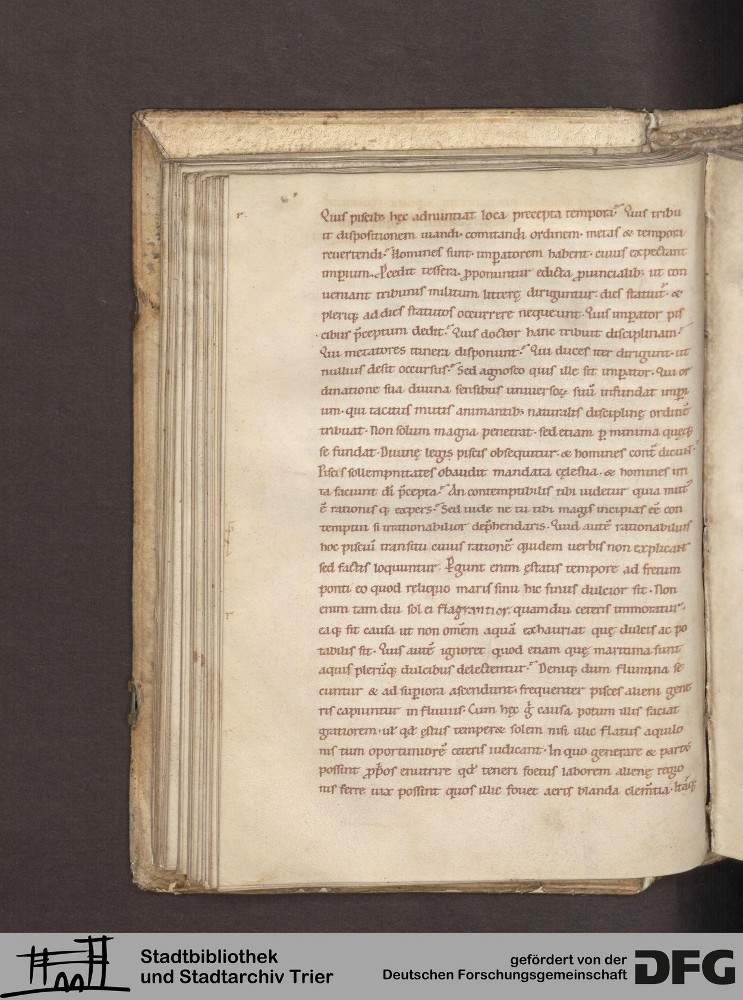 r.
Quis piscibꝫ hęc adnuntiat loca precepta tempora? Quis tribu
it dispositionem uiandi comitandi ordinem· metas & tempora
reuertendi? Homines sunt· imperatorem habent· cuius expectant
imperium. Pcedit tessera· pponuntur edicta puincialibꝫ ut con
ueniant tribunis militum litterę diriguntur· dies statuit̃· &
pleriqꝫ ad dies statutos occurrere nequeunt· Quis impator pis
cibus p̃ceptum dedit? Quis doctor hanc tribuit disciplinam?
Qui metatores itinera disponunt? Qui duces iter dirigunt· ut
nullius desit occursus? Sed agnosco quis ille sit impator· qui or
dinatione sua diuina sensibus uniuersoꝝ suũ infundat impi
um· qui tacitus mutis animantibꝫ naturalis disciplinę ordinẽ
tribuat· Non solum magna penetrat· sed etiam p minima quęqꝫ
se fundat· Diuinę legis piscis obsequitur· & homines cont̃dicun̄t?
Pisces sollempnitates obaudit mandata cęlestia· & homines irri
ta faciunt dī p̃cepta? An contemptibilis tibi uidetur quia mut'
ē rationis qꝫ expers? Sed uide ne tu tibi magis incipias eē con
temptui si irrationabilior dep̃hendaris· Quid autẽ rationabilius
hoc pisciũ transitu cuius rationẽ quidem uerbis non explicant
sed factis loquuntur· Pgunt enim ęstatis tempore ad fretum
ponti eo quod reliquo maris sinu hic sinus dulcior sit· Non
enim tam diu sol ei flagrantior· quamdiu ceteris immoratur·
eaqꝫ fit causa ut non omẽm aquā exhauriat quę dulcis ac po
tabilis sit· Quis autẽ ignoret quod etiam quę maritima sunt
aquis plerũqꝫ dulcibus delectentur? Deniqꝫ dum flumina se
cuntur & ad supiora ascendunt· frequenter pisces alieni gene
ris capiuntur in fluuiis· Cum hęc g̃ causa potum illis faciat
gratiorem· ul' qđ ęstus temper& solem nisi illic flatus aquilo
nis tum oportuniorẽ ceteris iudicant· In quo generare & part'
possint ppos enutrire qđ teneri foetus laborem alienę regio
nis ferre uix possint quos illic fouet aeris blanda clem̃tia· Itaqꝫ
Stadtbibliothek
und Stadtarchiv Trier
gefördert von der
Deutschen Forschungsgemeinschaft
DFG